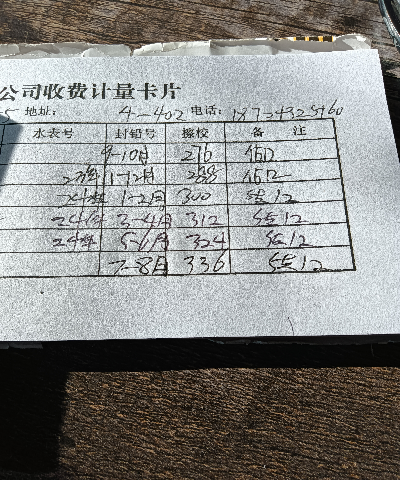 公司收费计量卡片
5 地址: 4-402 电话:
水表号 封铅号 擦校 备 注
9-10月 276
23年 11-12月 288
24年 1-2月 300 结12
24年 3-4月 312 结12
24年 5-6月 324 结12
7-8月 336 结12